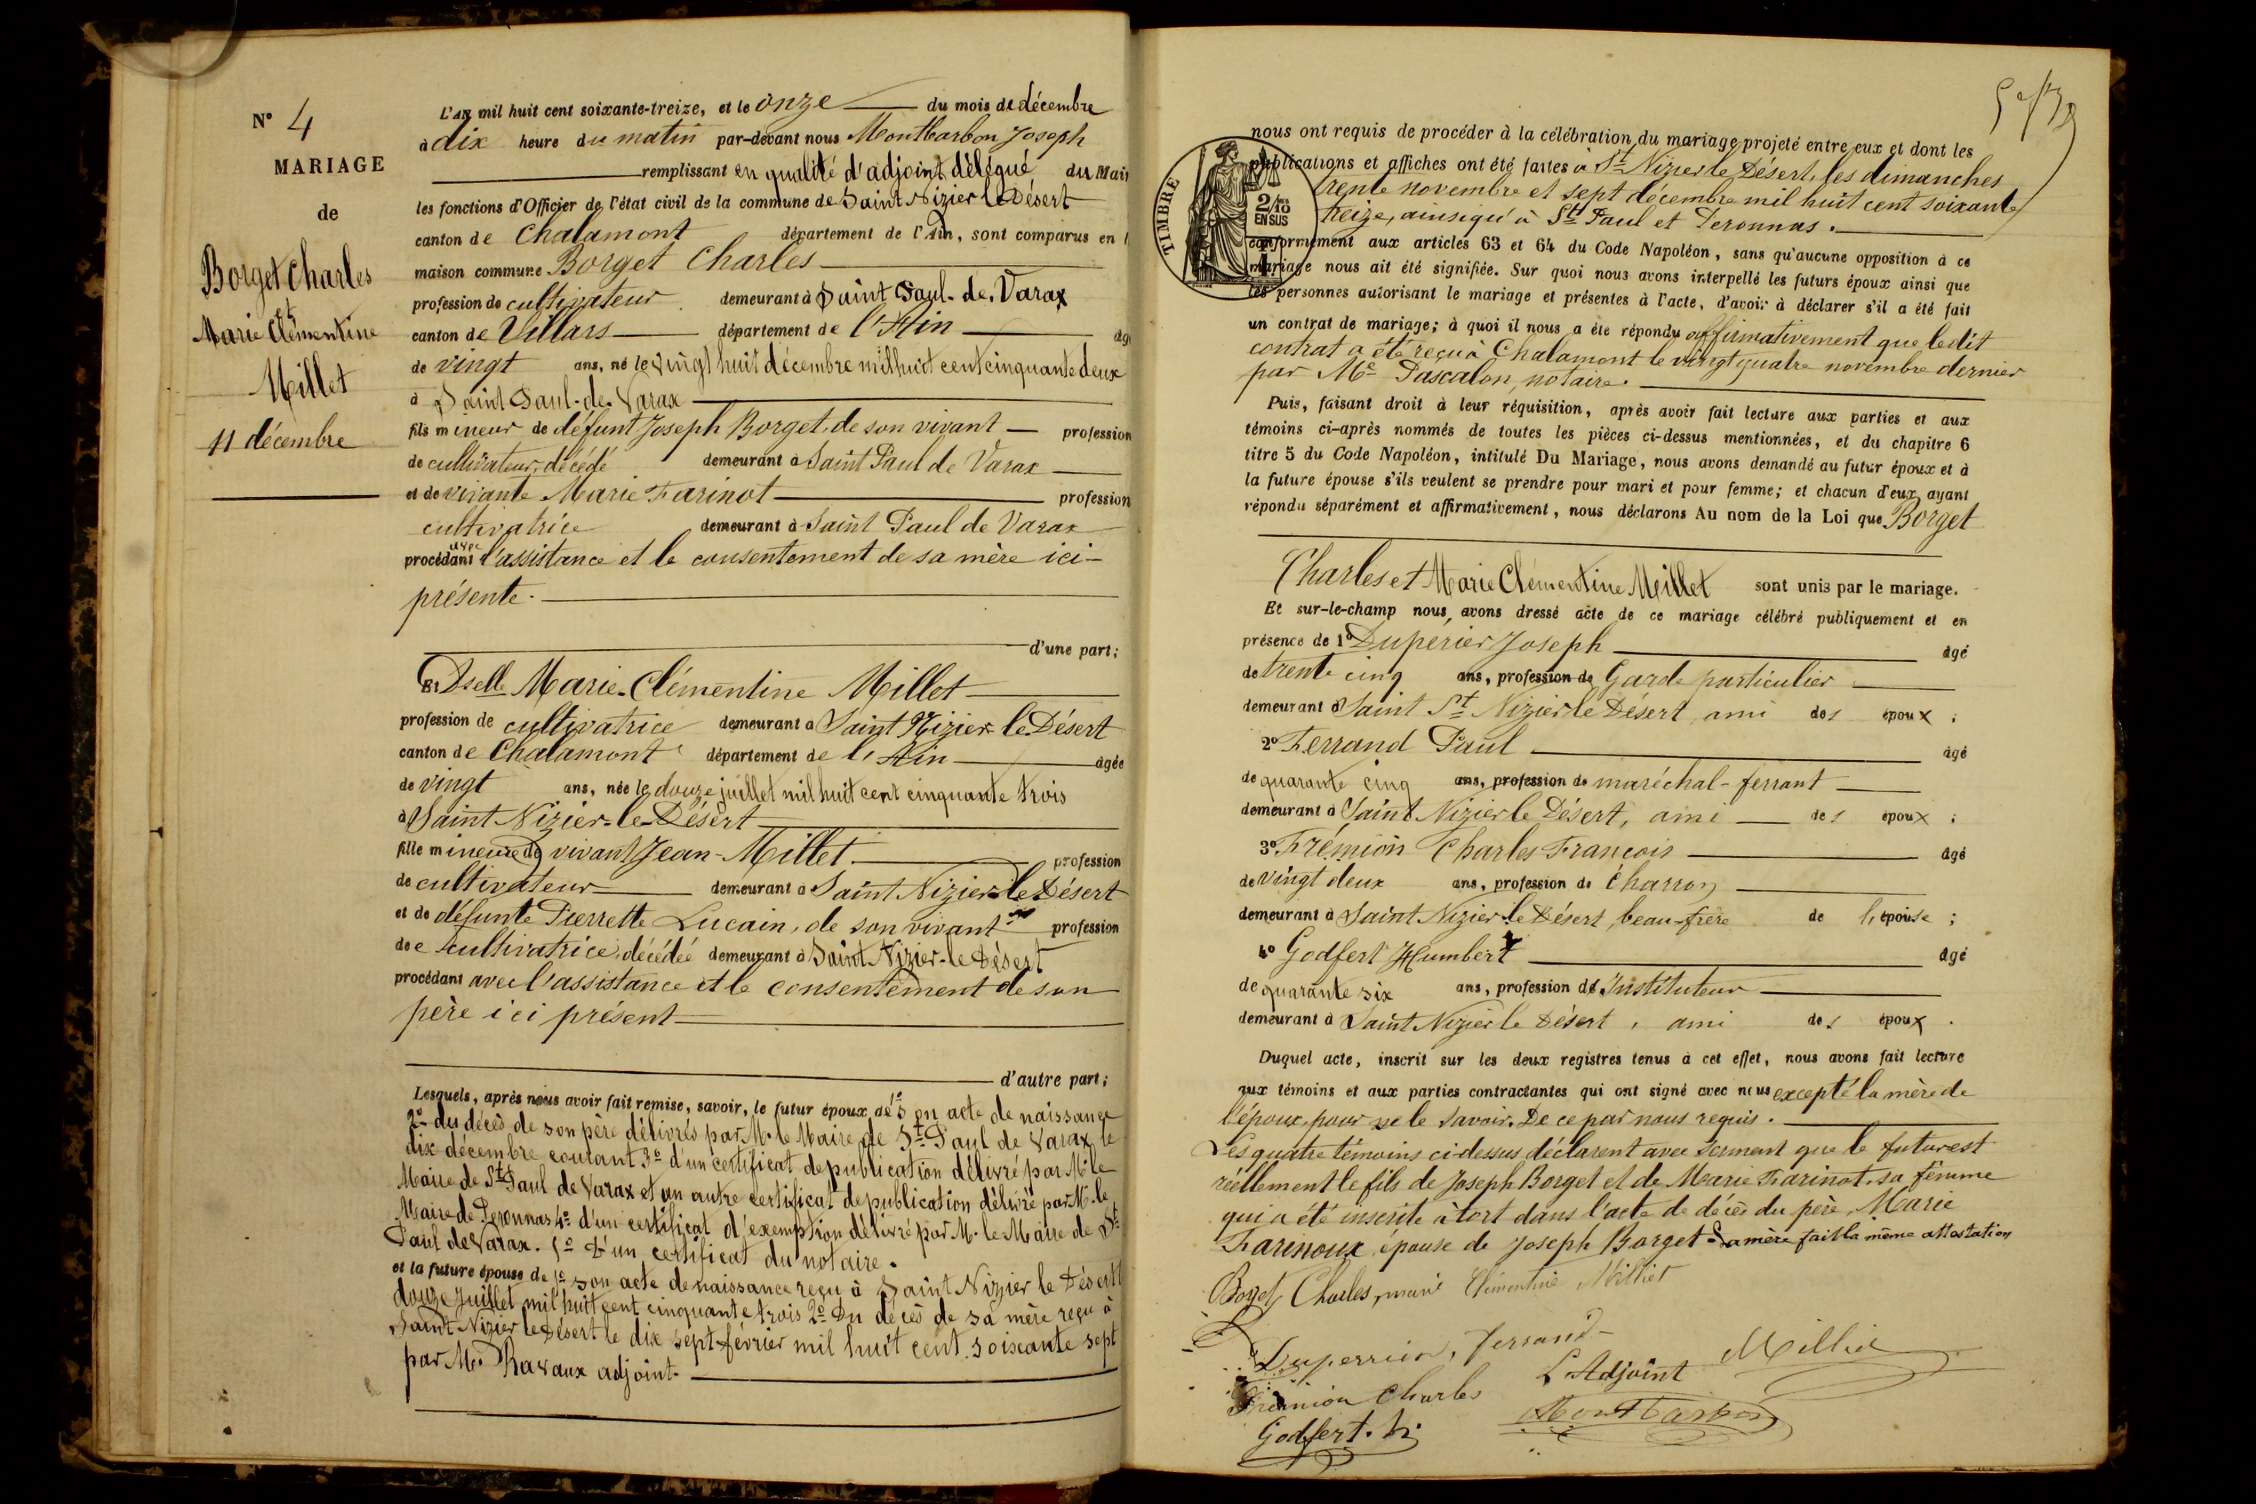 N° 4
MARIAGE
de
Borget Charles
et
Marie Clémentine
Millet
11 décembre
L'an mil huit cent soixante-treize, et le onze du mois de décembre
à dix heure du matin par-devant nous Montbarbon Joseph
remplissant en qualité d'adjoint délégué du Mair
les fonctions d'Officier de l'état civil de la commune de Saint Nizier le Désert
canton de Chalamont département de l'Ain, sont comparus en l
maison commune Borget Charles
profession de cultivateur demeurant à Saint Paul-de-Varax
canton de Villars département de l'Ain âgé
de vingt ans, né le vingt huit décembre mil huit cent cinquante deux
à Saint Paul-de-Varax
fils mineur de défunt Joseph Borget de son vivant profession
de cultivateur, décédé demeurant à Saint Paul de Varax
et de vivante Marie Farinot profession
cultivatrice demeurant à Saint Paul de Varax
procédant avec l'assistance et le consentement de sa mère ici-
présente.
d'une part;
Et Dselle Marie-Clémentine Millet
profession de cultivatrice demeurant à Saint Nizier-le-Désert
canton de Chalamont département de l'Ain âgée
de vingt ans, née le douze juillet mil huit cent cinquante trois
à Saint Nizier-le-Désert
fille mineure de vivant Jean-Millet profession
de cultivateur demeurant à Saint Nizier-le-Désert
et de défunte Pierrette Lucain, de son vivant profession
de cultivatrice, décédée demeurant à Saint Nizier-le-Désert
procédant avec l'assistance et le consentement de son
père ici présent
d'autre part;
Lesquels, après nous avoir fait remise, savoir, le futur époux, de 1° son acte de naissance
2° du décès de son père délivrés par M. le Maire de St Paul de Varax, le
dix décembre courant 3° d'un certificat de publication délivré par M. le
Maire de St Paul de Varax et un autre certificat de publication délivré par M. le
Maire de Péronnas 4° d'un certificat d'exemption délivré par M. le Maire de St
Paul de Varax. 5° d'un certificat du notaire.
et la future épouse de 1° son acte de naissance reçu à Saint Nizier le Désert
douze Juillet mil huit cent cinquante trois 2° du décès de sa mère reçu à
Saint Nizier le Désert le dix sept février mil huit cent soixante sept
par M. Ravaux adjoint.
nous ont requis de procéder à la célébration du mariage projeté entre eux et dont les
publications et affiches ont été faites à St Nizier le Désert, les dimanches
trente novembre et sept décembre mil huit cent soixante
treize, ainsi qu'à St Paul et Péronnas.
conformément aux articles 63 et 64 du Code Napoléon, sans qu'aucune opposition à ce
mariage nous ait été signifiée. Sur quoi nous avons interpellé les futurs époux ainsi que
les personnes autorisant le mariage et présentes à l'acte, d'avoir à déclarer s'il a été fait
un contrat de mariage; à quoi il nous a été répondu affirmativement que le dit
contrat a été reçu à Chalamont le vingt quatre novembre dernier
par Me Pascalon, notaire.
TIMBRE
2/10 EN SUS
Puis, faisant droit à leur réquisition, après avoir fait lecture aux parties et aux
témoins ci-après nommés de toutes les pièces ci-dessus mentionnées, et du chapitre 6
titre 5 du Code Napoléon, intitulé Du Mariage, nous avons demandé au futur époux et à
la future épouse s'ils veulent se prendre pour mari et pour femme; et chacun d'eux ayant
répondu séparément et affirmativement, nous déclarons Au nom de la Loi que Borget
Charles et Marie Clémentine Meillet sont unis par le mariage.
Et sur-le-champ nous avons dressé acte de ce mariage célébré publiquement et en
présence de 1° Dupérier Joseph âgé
de trente cinq ans, profession de Garde particulier
demeurant à Saint St Nizier le Désert, ami des époux;
2° Ferrand Paul âgé
de quarante cinq ans, profession de maréchal-ferrant
demeurant à Saint Nizier le Désert, ami des époux;
3° Frémion Charles François âgé
de vingt deux ans, profession de charron
demeurant à Saint Nizier le Désert, beau-frère de l'épouse;
4° Godfert Humbert âgé
de quarante six ans, profession d'Instituteur
demeurant à Saint Nizier le Désert, ami des époux.
Duquel acte, inscrit sur les deux registres tenus à cet effet, nous avons fait lecture
aux témoins et aux parties contractantes qui ont signé avec nous excepté la mère de
l'époux, pour ne le savoir. De ce par nous requis.
Les quatre témoins ci-dessus déclarent avec serment que le futur est
réellement le fils de Joseph Borget et de Marie Farinot, sa femme
qui a été inscrite à tort dans l'acte de décès du père, Marie
Farinoux épouse de Joseph Borget. La mère fait la même attestation
Borget Charles, marie Clémentine Milliet
Duperrier, ferrand
L'Adjoint Milliet
Frémion Charles
Montbarbon
Godfert. h.